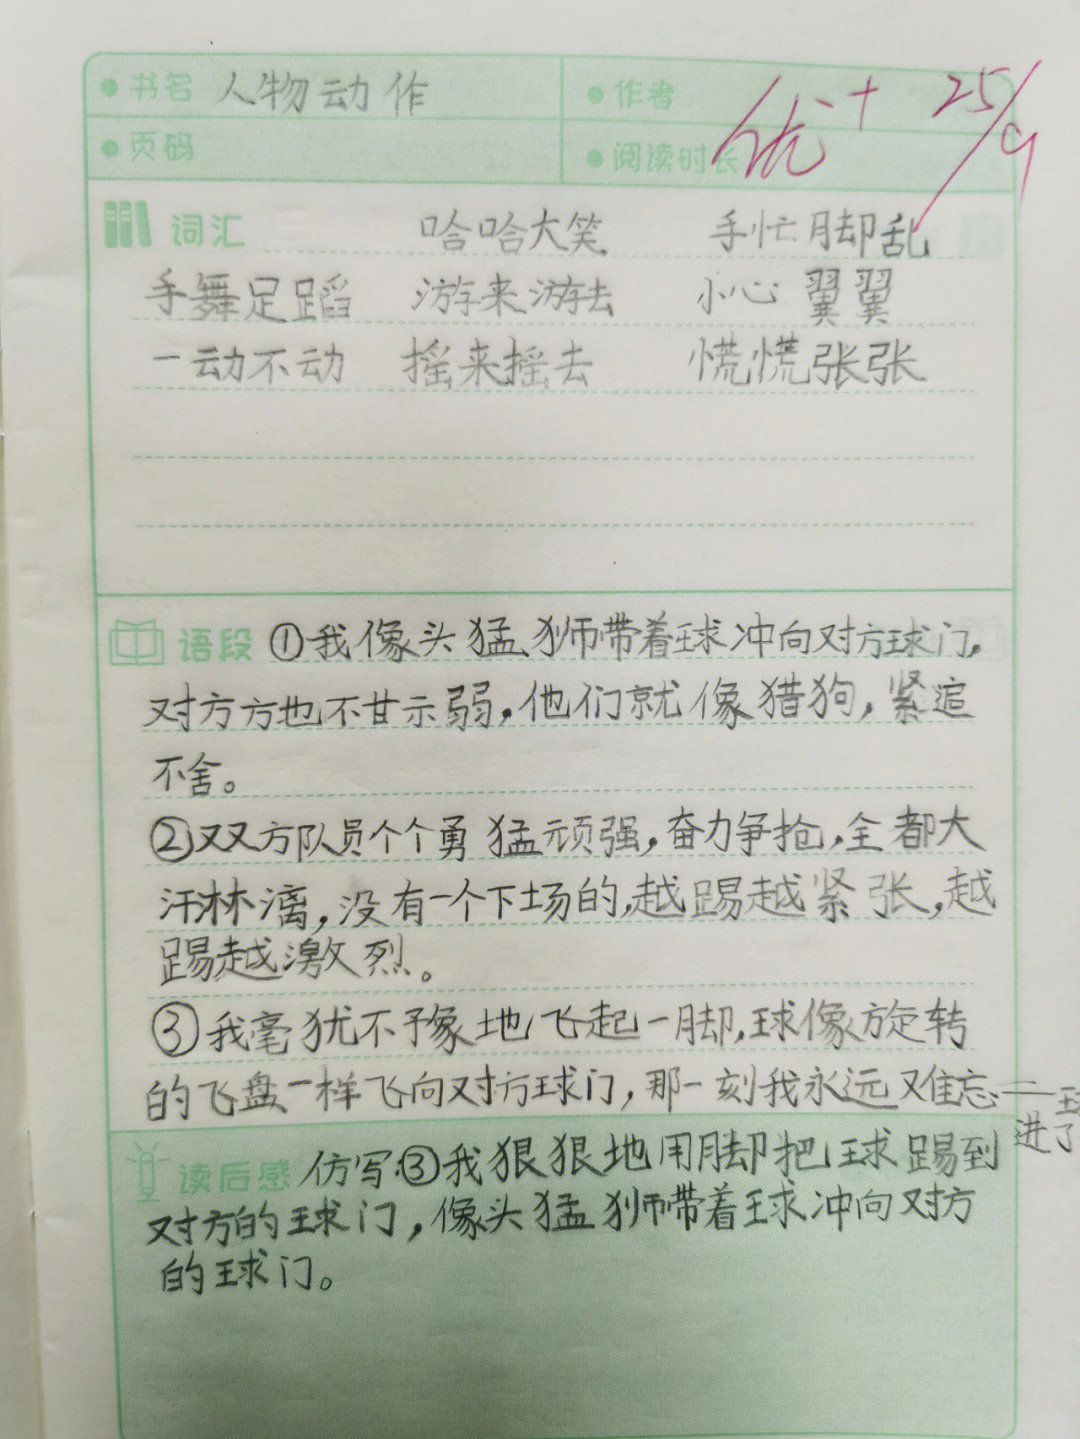 书名 人物动作 作者
优+ 25/9
页码 阅读时长
词汇 哈哈大笑 手忙脚乱
手舞足蹈 游来游去 小心翼翼
一动不动 摇来摇去 慌慌张张
语段 ①我像头猛狮带着球冲向对方球门,
对方方也不甘示弱,他们就像猎狗,紧追
不舍。
②双方队员个个勇猛顽强,奋力争抢,全都大
汗淋漓,没有一个下场的,越踢越紧张,越
踢越激烈。
③我毫犹不豫地飞起一脚,球像旋转
的飞盘一样飞向对方球门,那一刻我永远难忘
球
进了
读后感 仿写:③我狠狠地用脚把球踢到
对方的球门,像头猛狮带着球冲向对方
的球门。